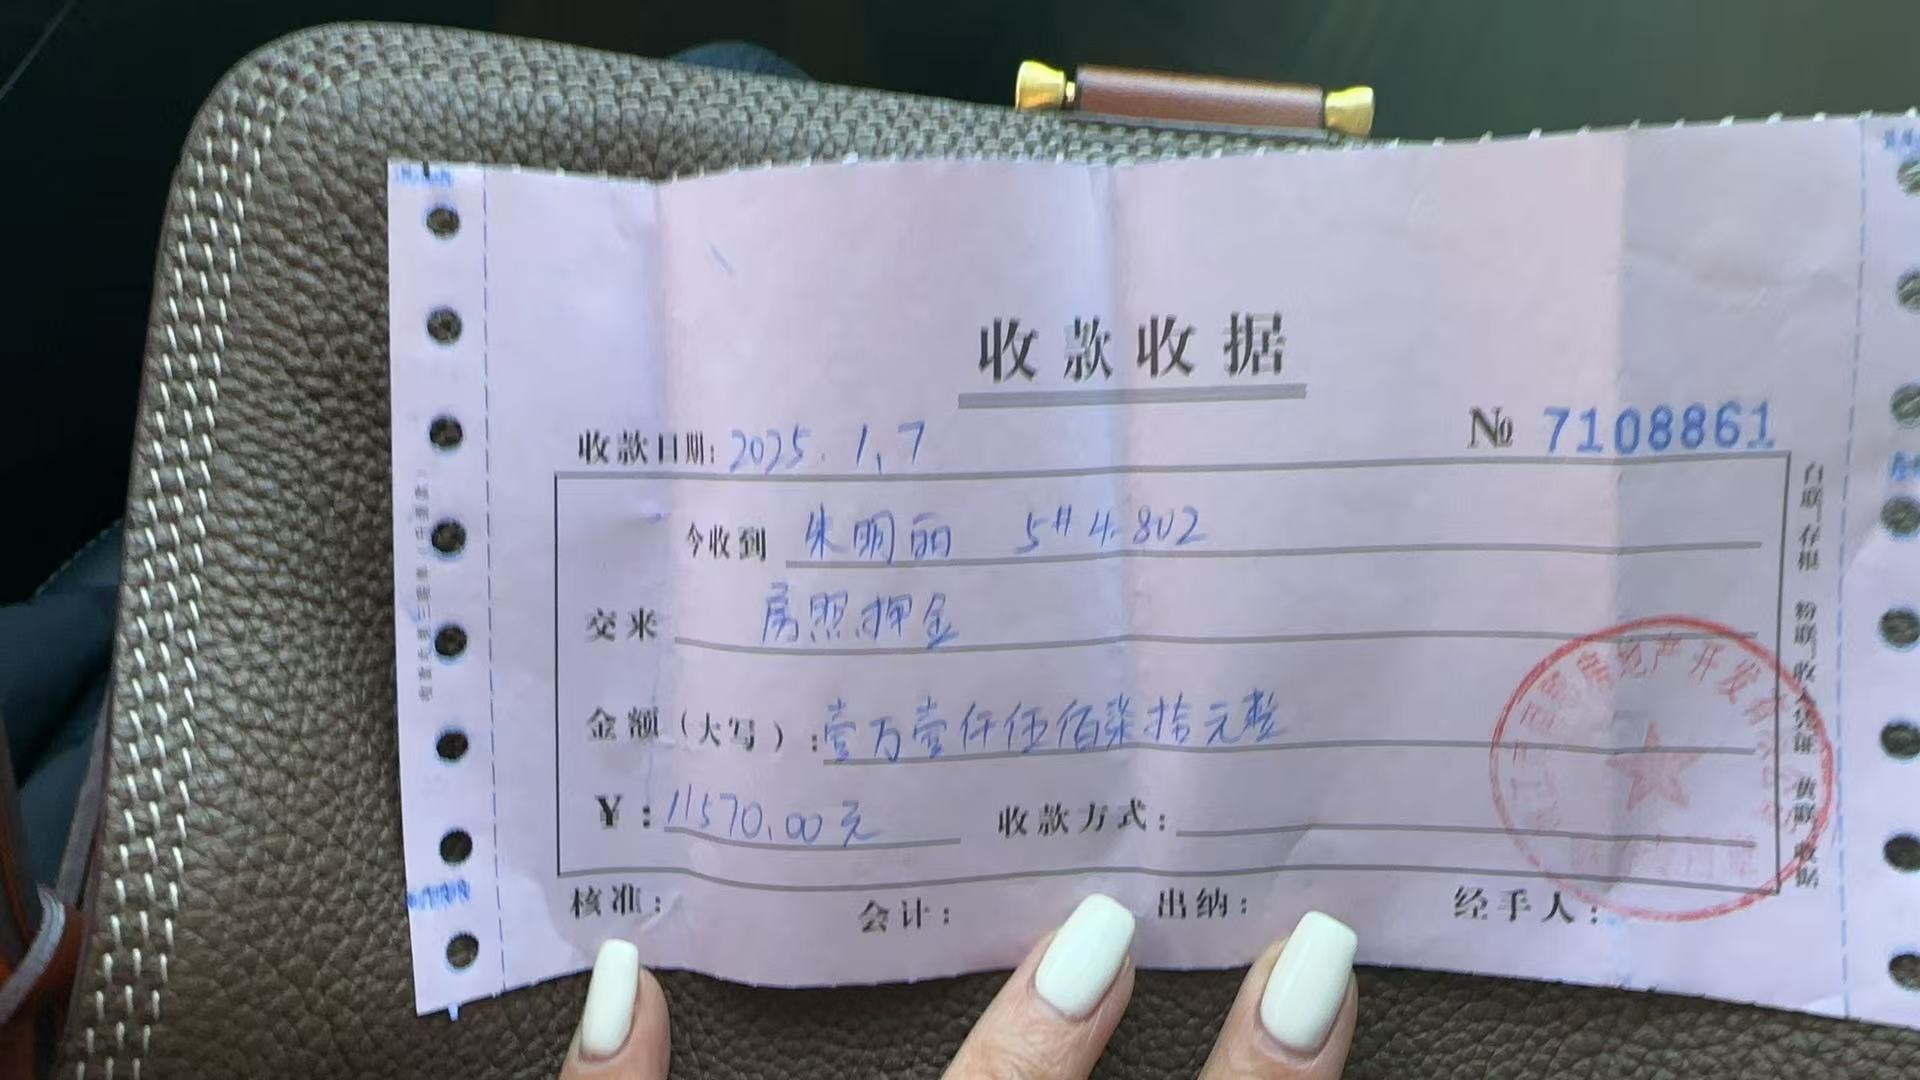 收款收据
收款日期: 2025.1.7
№ 7108861
今收到 朱明丽 5# 4.802
交来 房照押金
金额(大写): 壹万壹仟伍佰柒拾元整
¥: 11570.00元 收款方式:
核准: 会计: 出纳: 经手人:
白联:存根 粉联:收入凭证 黄联:收据
房地产开发有